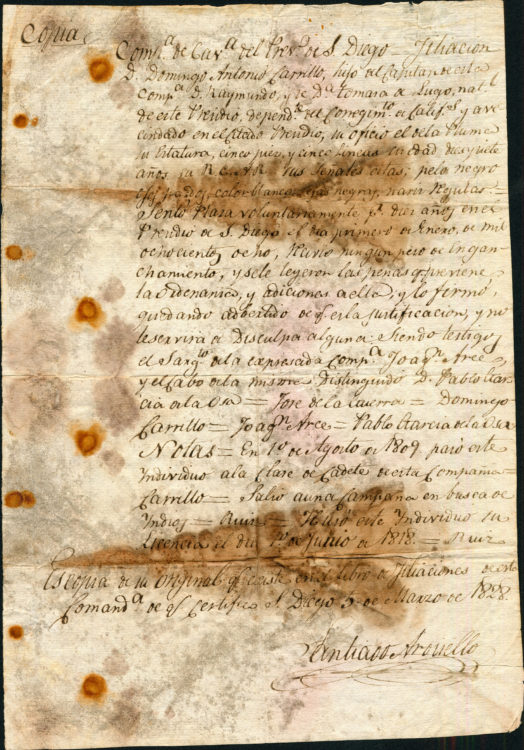 Copia
Comp.a de Cav.a del Pres.o de S. Diego = Filiacion
D. Domingo Antonio Carrillo, hijo del Capitan de esta
Comp.a D. Raymundo, y de D.a Tomasa de Lugo, nat.l
de este Presidio, depend.te del Corregim.to de Calif.s y ave
cindado en el Citado Presidio, su oficio el de la Pluma
su Estatura, cinco pies, y cinco lineas su edad dies y siete
años su R. C. A. R. sus señales estas; pelo negro
ojos color blanco, sejas negras, naris Regular =
Sentó Plaza voluntariamente p.r diez años en el
Presidio de S. Diego el dia primero de Enero, de mil
ochocientos ocho, Huvo ningun peso de Engan
chamiento, y se le leyeron las penas q previene
la Ordenansa, y adiciones a ella, y lo fermó,
quedando advertido de q es la justificacion, y no
le servirá de Disculpa alguna Siendo testigos
el Sarg.to de la expresada Comp.a Joaq.n Arce
y el Cabo de la misma Distinguido D. Pablo Gar
cia de la = Jose de la Guerra = Domingo
Carrillo = Joaq.n Arce = Pablo Garcia de la
Notas = En 1.o de Agosto de 1809 pasó este
Individuo a la Clase de Cadete de esta Compañia =
Carrillo = Salio a una Campaña en busca de
Indios = Ruiz = este Individuo su
Licencia el dia 1.o de Junio de 1818. = Ruiz
Es copia de su Original q existe en el libro de Filiaciones de esta
Comand.a de q Certifico S. Diego 5 de Marzo de 1828.
Santiago Arguello